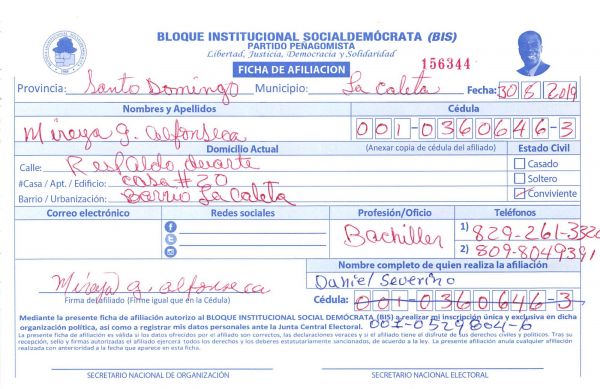 BLOQUE INSTITUCIONAL SOCIALDEMÓCRATA (BIS)
PARTIDO PEÑAGOMISTA
Libertad, Justicia, Democracia y Solidaridad
FICHA DE AFILIACION
156344
Provincia: Santo Domingo Municipio: La Caleta Fecha: 30 8 2019
Nombres y Apellidos Cédula
Mireya g. alfonseca 001-0360646-3
Domicilio Actual (Anexar copia de cédula del afiliado) Estado Civil
Calle: Respaldo duarte Casado
#Casa / Apt. / Edificio: casa #20 Soltero
Barrio / Urbanización: Barrio La Caleta Conviviente
Correo electrónico Redes sociales Profesión/Oficio Teléfonos
Bachiller 1) 829-261-3320
2) 809-8049391
Nombre completo de quien realiza la afiliación
Mireya g. alfonseca Daniel Severino
Firma del afiliado (Firme igual que en la Cédula) Cédula: 001-0360646-3
Mediante la presente ficha de afiliación autorizo al BLOQUE INSTITUCIONAL SOCIAL DEMÓCRATA (BIS) a realizar mi inscripción única y exclusiva en dicha
organización política, así como a registrar mis datos personales ante la Junta Central Electoral. 001-0529804-6
La presente ficha de afiliación es válida y los datos ofrecidos por el afiliado son correctos, las declaraciones veraces y si el afiliado tiene el disfrute de sus derechos civiles y políticos. Tras su
recepción, sello y firmas autorizadas el afiliado ejercerá todos los derechos y los deberes estatutariamente sancionados, de acuerdo a la ley. La presente afiliación anula cualquier afiliación
realizada con anterioridad a la fecha que aparece en esta ficha.
SECRETARIO NACIONAL DE ORGANIZACIÓN SECRETARIO NACIONAL ELECTORAL